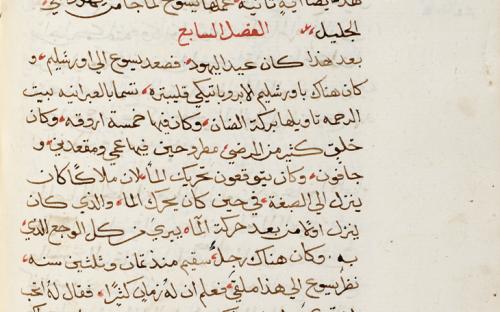 هذه ايضا اية ثانية عملها يسوع لما جا من يهودا الي
الجليل الفصل السابع
بعد هذا كان عيد اليهود فصعد يسوع الي اورشليم و
كان هناك باورشليم الابروباتيكي قلمبتره تسما بالعبرانيه بيت
الرحمه تاويلها بركة الضان وكان فيها خمسة اروقه وكان
خلق كثير من المرضي مطروحين فيها عمي ومقعدين و
جافون وكان يتوقعون تحريك الما لان ملاكا كان
ينزل الي الصبغة في حين كان يحرك الما والذي كان
ينزل اولا من بعد حركة الما يبري من كل الوجع الذي
به وكان هناك رجل سقيم منذ ثمان وثلثين سنه
نظر يسوع الي هذا ملقي فعلم ان له زمان كثيرا فقال له اتحب